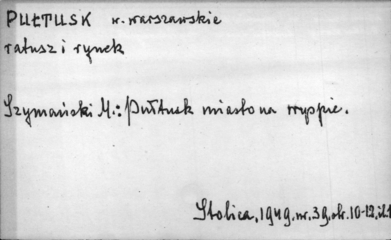 PUŁTUSK w. warszawskie
ratusz i rynek
Szymański M.: Pułtusk miasto na wyspie.
Stolica, 1949, nr. 39, str. 10-12, il.